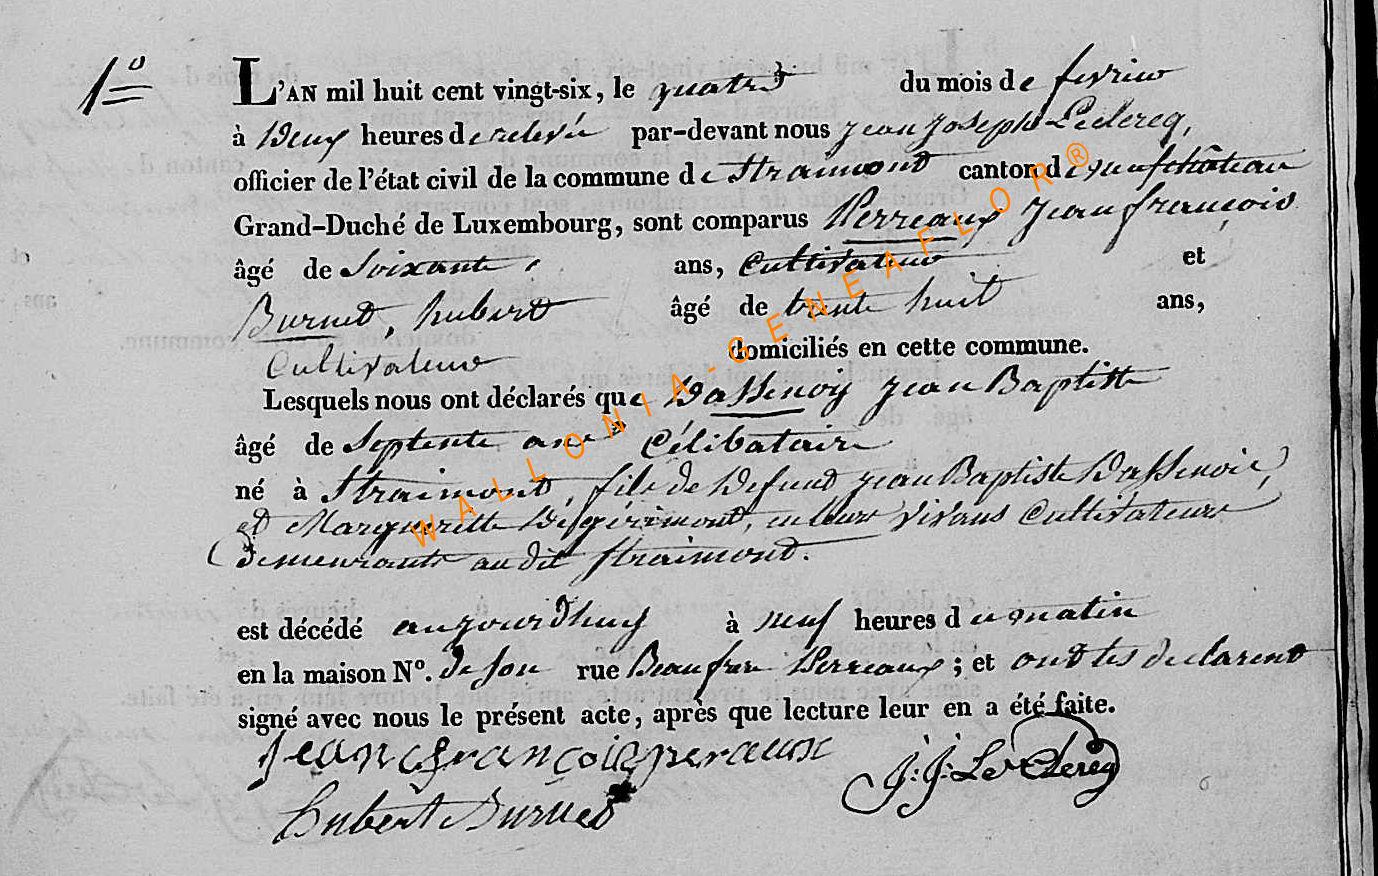 1º
L'AN mil huit cent vingt-six, le quatre du mois de fevrier
à Deux heures de relevée par-devant nous jean joseph Leclercq,
officier de l'état civil de la commune de Straimont canton de neufchâteau
Grand-Duché de Luxembourg, sont comparus Perreaux jean françois
âgé de Soixante ans, Cultivateur et
Burnet, hubert âgé de trente huit ans,
Cultivateur domiciliés en cette commune.
Lesquels nous ont déclarés que Dassenoy jean Baptiste
âgé de Septente ans Célibataire
né à Straimont, fils de Defunt jean Baptiste Dassenoie,
et Marguerette Degérimont, en leurs vivans Cultivateurs
Demeurants au dit Straimont.
est décédé aujourd'huy à neuf heures du matin
en la maison Nº. de son rue Beaufrere Perreaux ; et ont les declarent
signé avec nous le présent acte, après que lecture leur en a été faite.
jean françois peraux J: J: Le Clercq
hubert Burnet
WALLONIA-GENEAFLOR®